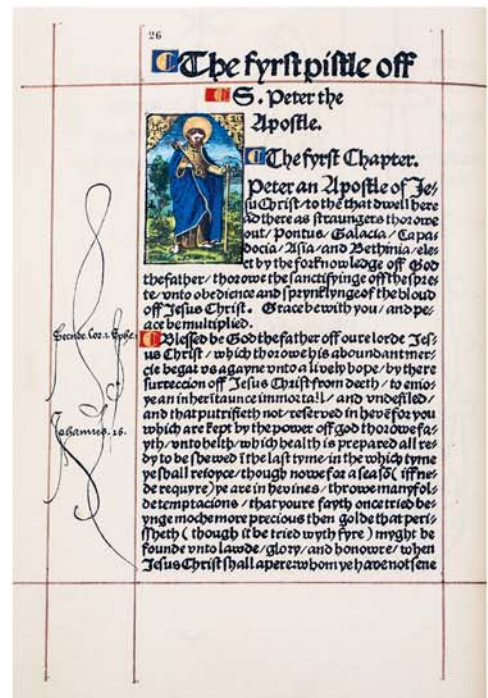 26
The fyrst pistle off
S. Peter the
Apostle.
The fyrst Chapter.
Peter an Apostle of Je/
su Christ/to thē that dwell here
ād there as straungers thorowe
out/Pontus/Galacia/Capa/
docia/Asia/and Bethinia/eles
ct by the forknowledge off God
the father/thorowe the sanctifyinge off the spre/
te/vnto obedience and sprynklynge of the bloud
off Jesus Christ. Grace be with you/and pe/
ace be multiplied.
Blessed be God the father off oure lorde Jes/
us Christ/which thorowe his aboundant mer/
cie begat vs agayne vnto a lively hope/by there
surreccion off Jesus Christ from deeth/to enio/
ye an inheritaunce immortall/and vndefiled/
and that putrifieth not/reserved in hevē for you
which are kept by the power off god thorowe fa/
yth/vnto helth/which health is prepared all re/
dy to be shewed ī the last tyme/in the which tyme
ye shall reioyce/though nowe for a seasō (iff ne/
de requyre) ye are in hevines/throwe manyfol/
de temptacions/that youre fayth once tried be/
ynge moche more precious then golde that peri/
ssheth (though it be tried wyth fyre) myght be
founde vnto lawde/glory/and honowre/when
Jesus Christ shall apere: whom ye have not sene
Secnde. Cor. 1. Ephe.
Johannes. 16.